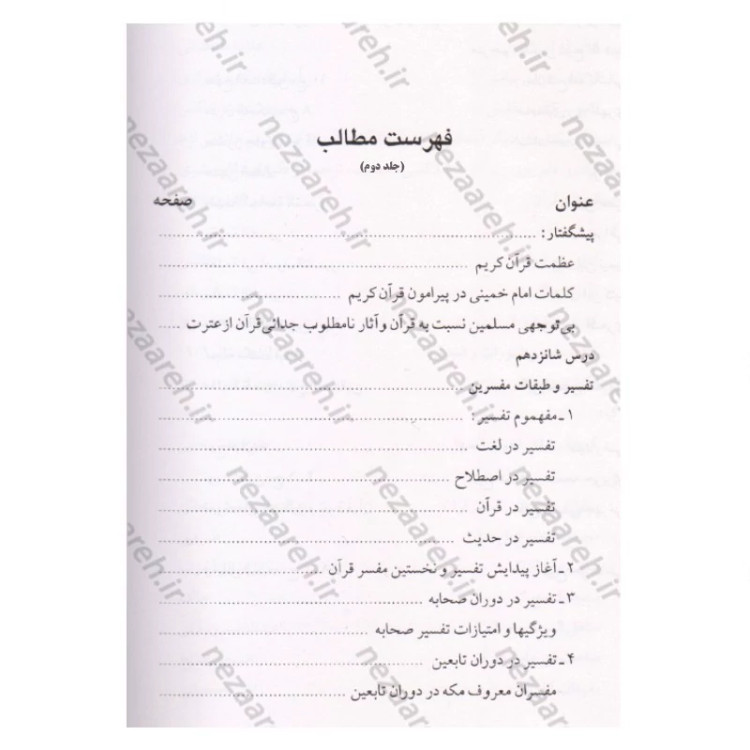 فهرست مطالب
(جلد دوم)
عنوان صفحه
پیشگفتار: ........................................
عظمت قرآن کریم ........................................
کلمات امام خمینی در پیرامون قرآن کریم ........................................
بی‌توجهی مسلمین نسبت به قرآن و آثار نامطلوب جدائی قرآن از عترت .....
درس شانزدهم
تفسیر و طبقات مفسرین ........................................
۱ـ مفهوم تفسیر: ........................................
تفسیر در لغت ........................................
تفسیر در اصطلاح ........................................
تفسیر در قرآن ........................................
تفسیر در حدیث ........................................
۲ـ آغاز پیدایش تفسیر و نخستین مفسر قرآن ........................................
۳ـ تفسیر در دوران صحابه ........................................
ویژگیها و امتیازات تفسیر صحابه ........................................
۴ـ تفسیر در دوران تابعین ........................................
مفسران معروف مکه در دوران تابعین ........................................
nezaareh.ir